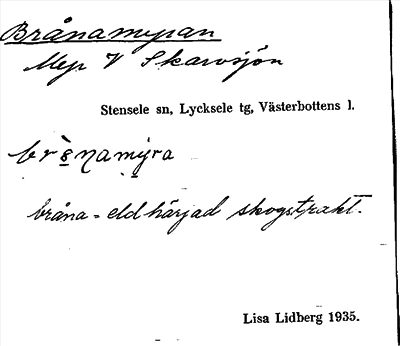 Brånamyran
Myr V Skarvsjön
Stensele sn, Lycksele tg, Västerbottens l.
bråna = eldhärjad skogstrakt.
Lisa Lidberg 1935.